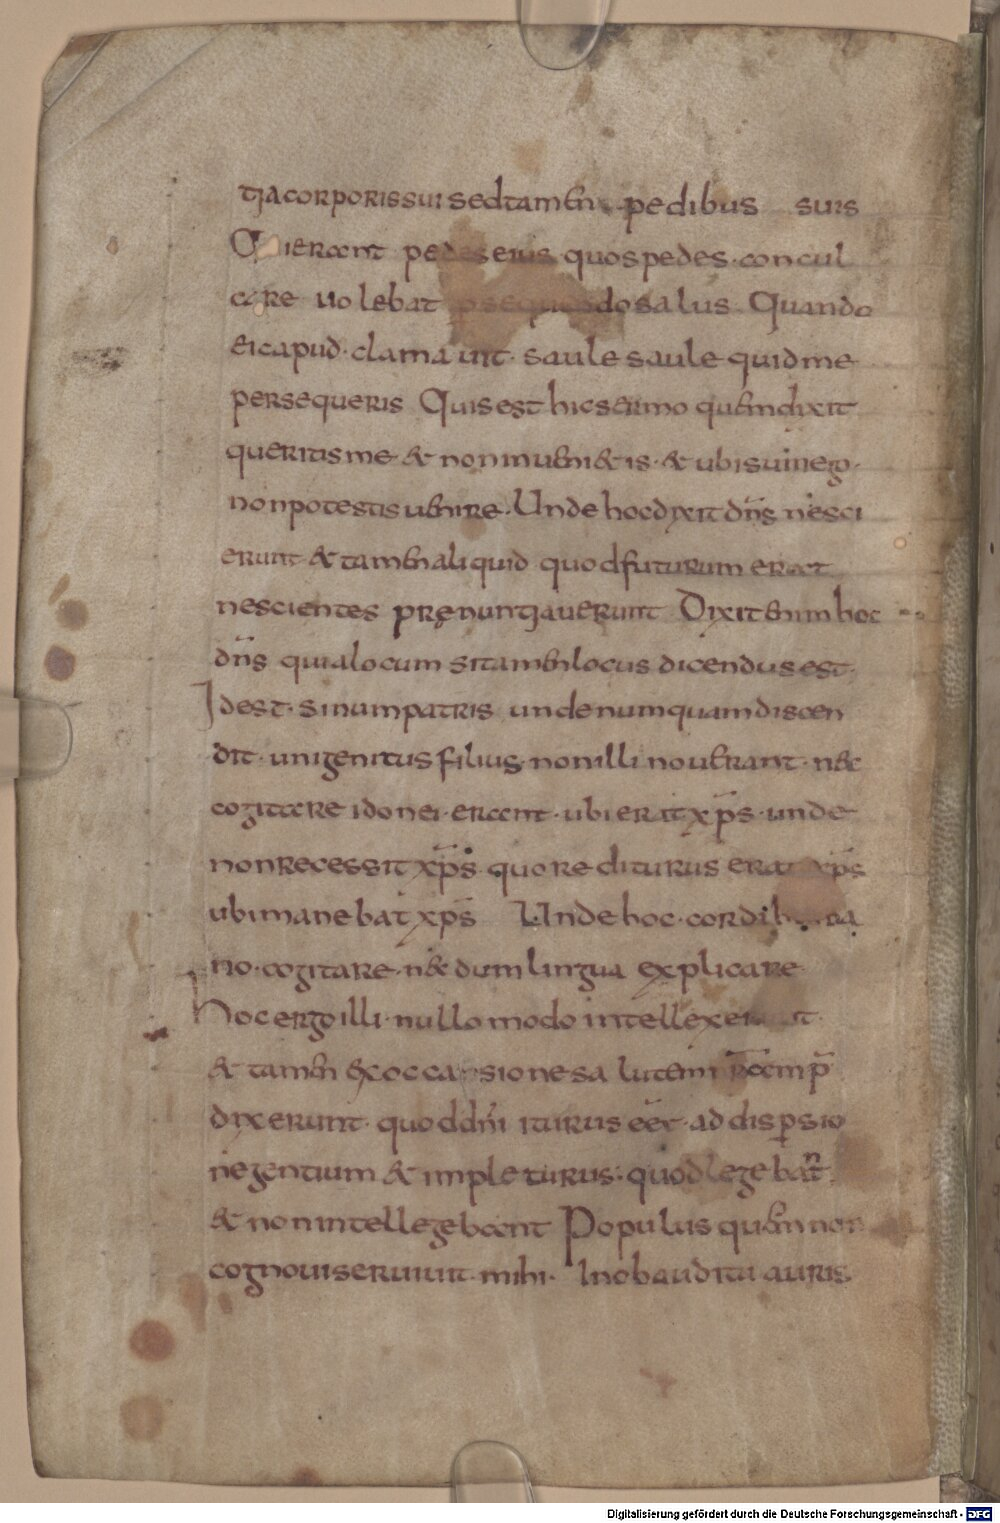 tia corporis sui sed tamen pedibus suis
Qui erant pedes eius quos pedes · concul
care uolebat persequendo salus Quando
ei capud · clamauit · saule saule quid me
persequeris Quis est hic sermo quem dixit
queritis me & non inueni&is · & ubi sum ego ·
non potestis uenire · Unde hoc dixit dns nesci
erunt & tamen aliquid quod futurum erat
nescientes prę nuntiauerunt Dixit enim hoc
dns quia locum si tamen locus dicendus est ·
Id est · sinum patris unde numquam discen
dit · unigenitus filius non illi nouerant · nec
cogitare idonei · erant · ubi erat xps · unde
non recessit xps quo rediturus erat xps
ubi manebat xps Unde hoc · cordi
no · cogitare · nec dum lingua explicare
hoc ergo illi · nullo modo intellexerunt ·
& tamen ex occasione salutem nram p
dixerunt · quod dni iturus eet · ad dispsio
ne gentium & impleturus · quod legebant
& non intellegebant Populus quem non
cognoui seruiuit · mihi · In obauditu auris
Digitalisierung gefördert durch die Deutsche Forschungsgemeinschaft - DFG